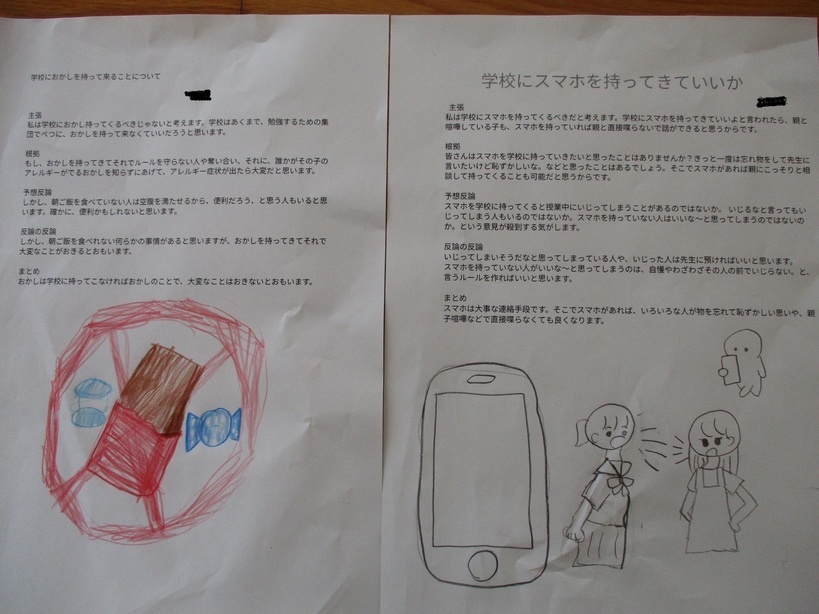 学校におかしを持って来ることについて
主張
私は学校におかし持ってくるべきじゃないと考えます。学校はあくまで、勉強するための集
団でべつに、おかしを持って来なくていいだろうと思います。
根拠
もし、おかしを持ってきてそれでルールを守らない人や奪い合い、それに、誰かがその子の
アレルギーがでるおかしを知らずにあげて、アレルギー症状が出たら大変だと思います。
予想反論
しかし、朝ご飯を食べていない人は空腹を満たせるから、便利だろう、と思う人もいると思
います。確かに、便利かもしれないと思います。
反論の反論
しかし、朝ご飯を食べれない何らかの事情があると思いますが、おかしを持ってきてそれで
大変なことがおきるとおもいます。
まとめ
おかしは学校に持ってこなければおかしのことで、大変なことはおきないとおもいます。
学校にスマホを持ってきていいか
主張
私は学校にスマホを持ってくるべきだと考えます。学校にスマホを持ってきていいよと言われたら、親と
喧嘩している子も、スマホを持っていれば親と直接喋らないで話ができると思うからです。
根拠
皆さんはスマホを学校に持っていきたいと思ったことはありませんか？きっと一度は忘れ物をして先生に
言いたいけど恥ずかしいな。などと思ったことはあるでしょう。そこでスマホがあれば親にこっそりと相
談して持ってくることも可能だと思うからです。
予想反論
スマホを学校に持ってくると授業中にいじってしまうことがあるのではないか。 いじるなと言ってもい
じってしまう人もいるのではないか。スマホを持っていない人はいいな〜と思ってしまうのではないの
か。という意見が殺到する気がします。
反論の反論
いじってしまいそうだなと思ってしまっている人や、いじった人は先生に預ければいいと思います。
スマホを持っていない人がいいな〜と思ってしまうのは、自慢やわざわざその人の前でいじらない。と、
言うルールを作ればいいと思います。
まとめ
スマホは大事な連絡手段です。そこでスマホがあれば、いろいろな人が物を忘れて恥ずかしい思いや、親
子喧嘩などで直接喋らなくても良くなります。